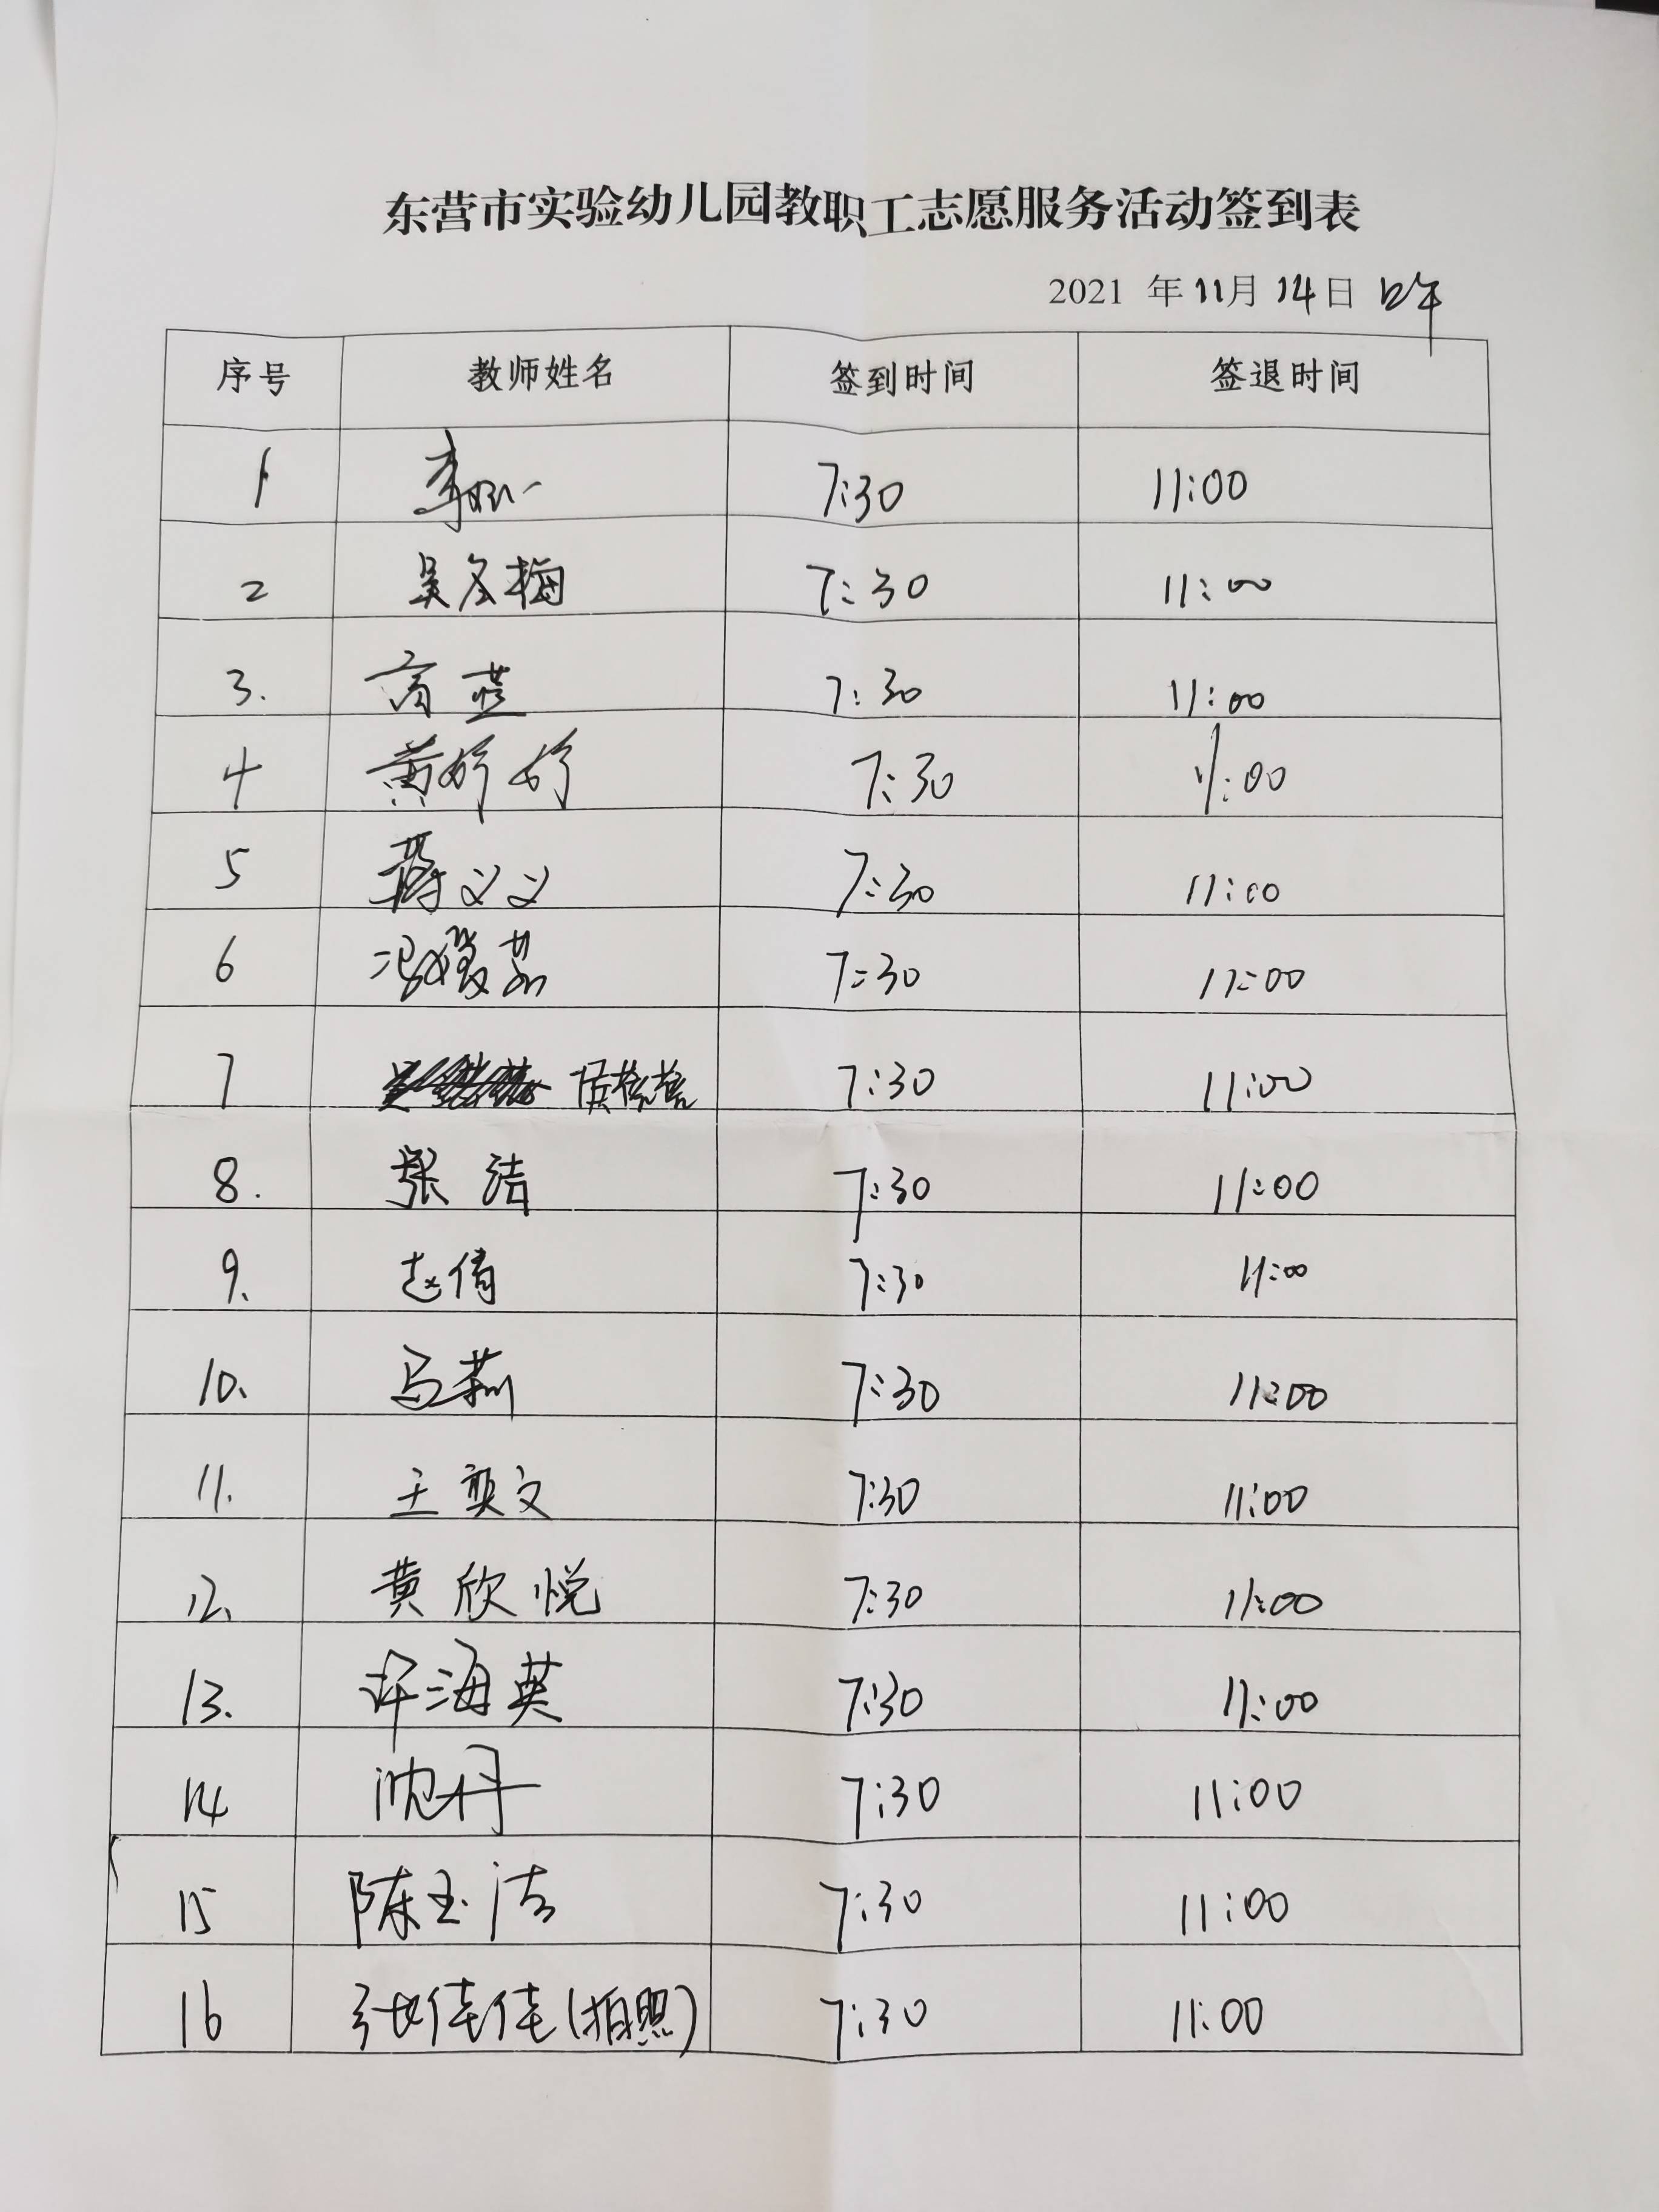 东营市实验幼儿园教职工志愿服务活动签到表
2021 年 11月 14日 上午
序号 教师姓名 签到时间 签退时间
1 李 7:30 11:00
2 吴冬梅 7:30 11:00
3. 高燕 7:30 11:00
4 黄妤妤 7:30 11:00
5 蒋义义 7:30 11:00
6 冯媛荔 7:30 11:00
7 侯蓉蓉 7:30 11:00
8. 张洁 7:30 11:00
9. 赵倩 7:30 11:00
10. 马莉 7:30 11:00
11. 王奕文 7:30 11:00
12. 黄欣悦 7:30 11:00
13. 许海英 7:30 11:00
14 沈丹 7:30 11:00
15 陈玉洁 7:30 11:00
16 张佳佳(拍照) 7:30 11:00